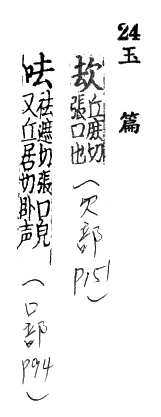 24 玉篇
㰦 丘庶切張口也 (欠部 p151)
呿 袪遮切張口皃又丘居切卧声 (口部 p94)